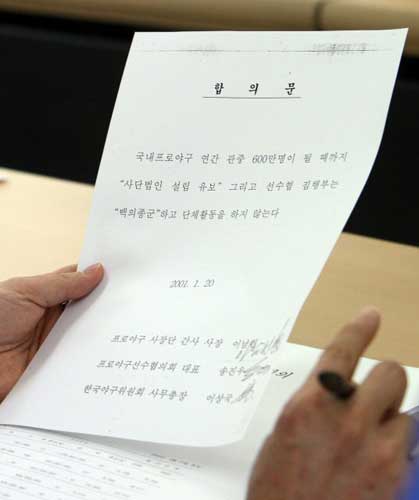 합 의 문
국내프로야구 연간 관중 600만명이 될 때까지
"사단법인 설립 유보" 그리고 선수협 집행부는
"백의종군"하고 단체활동을 하지 않는다
2001. 1. 20
프로야구 사장단 간사 사장 이남헌
프로야구선수협의회 대표 송진우
한국야구위원회 사무총장 이상국